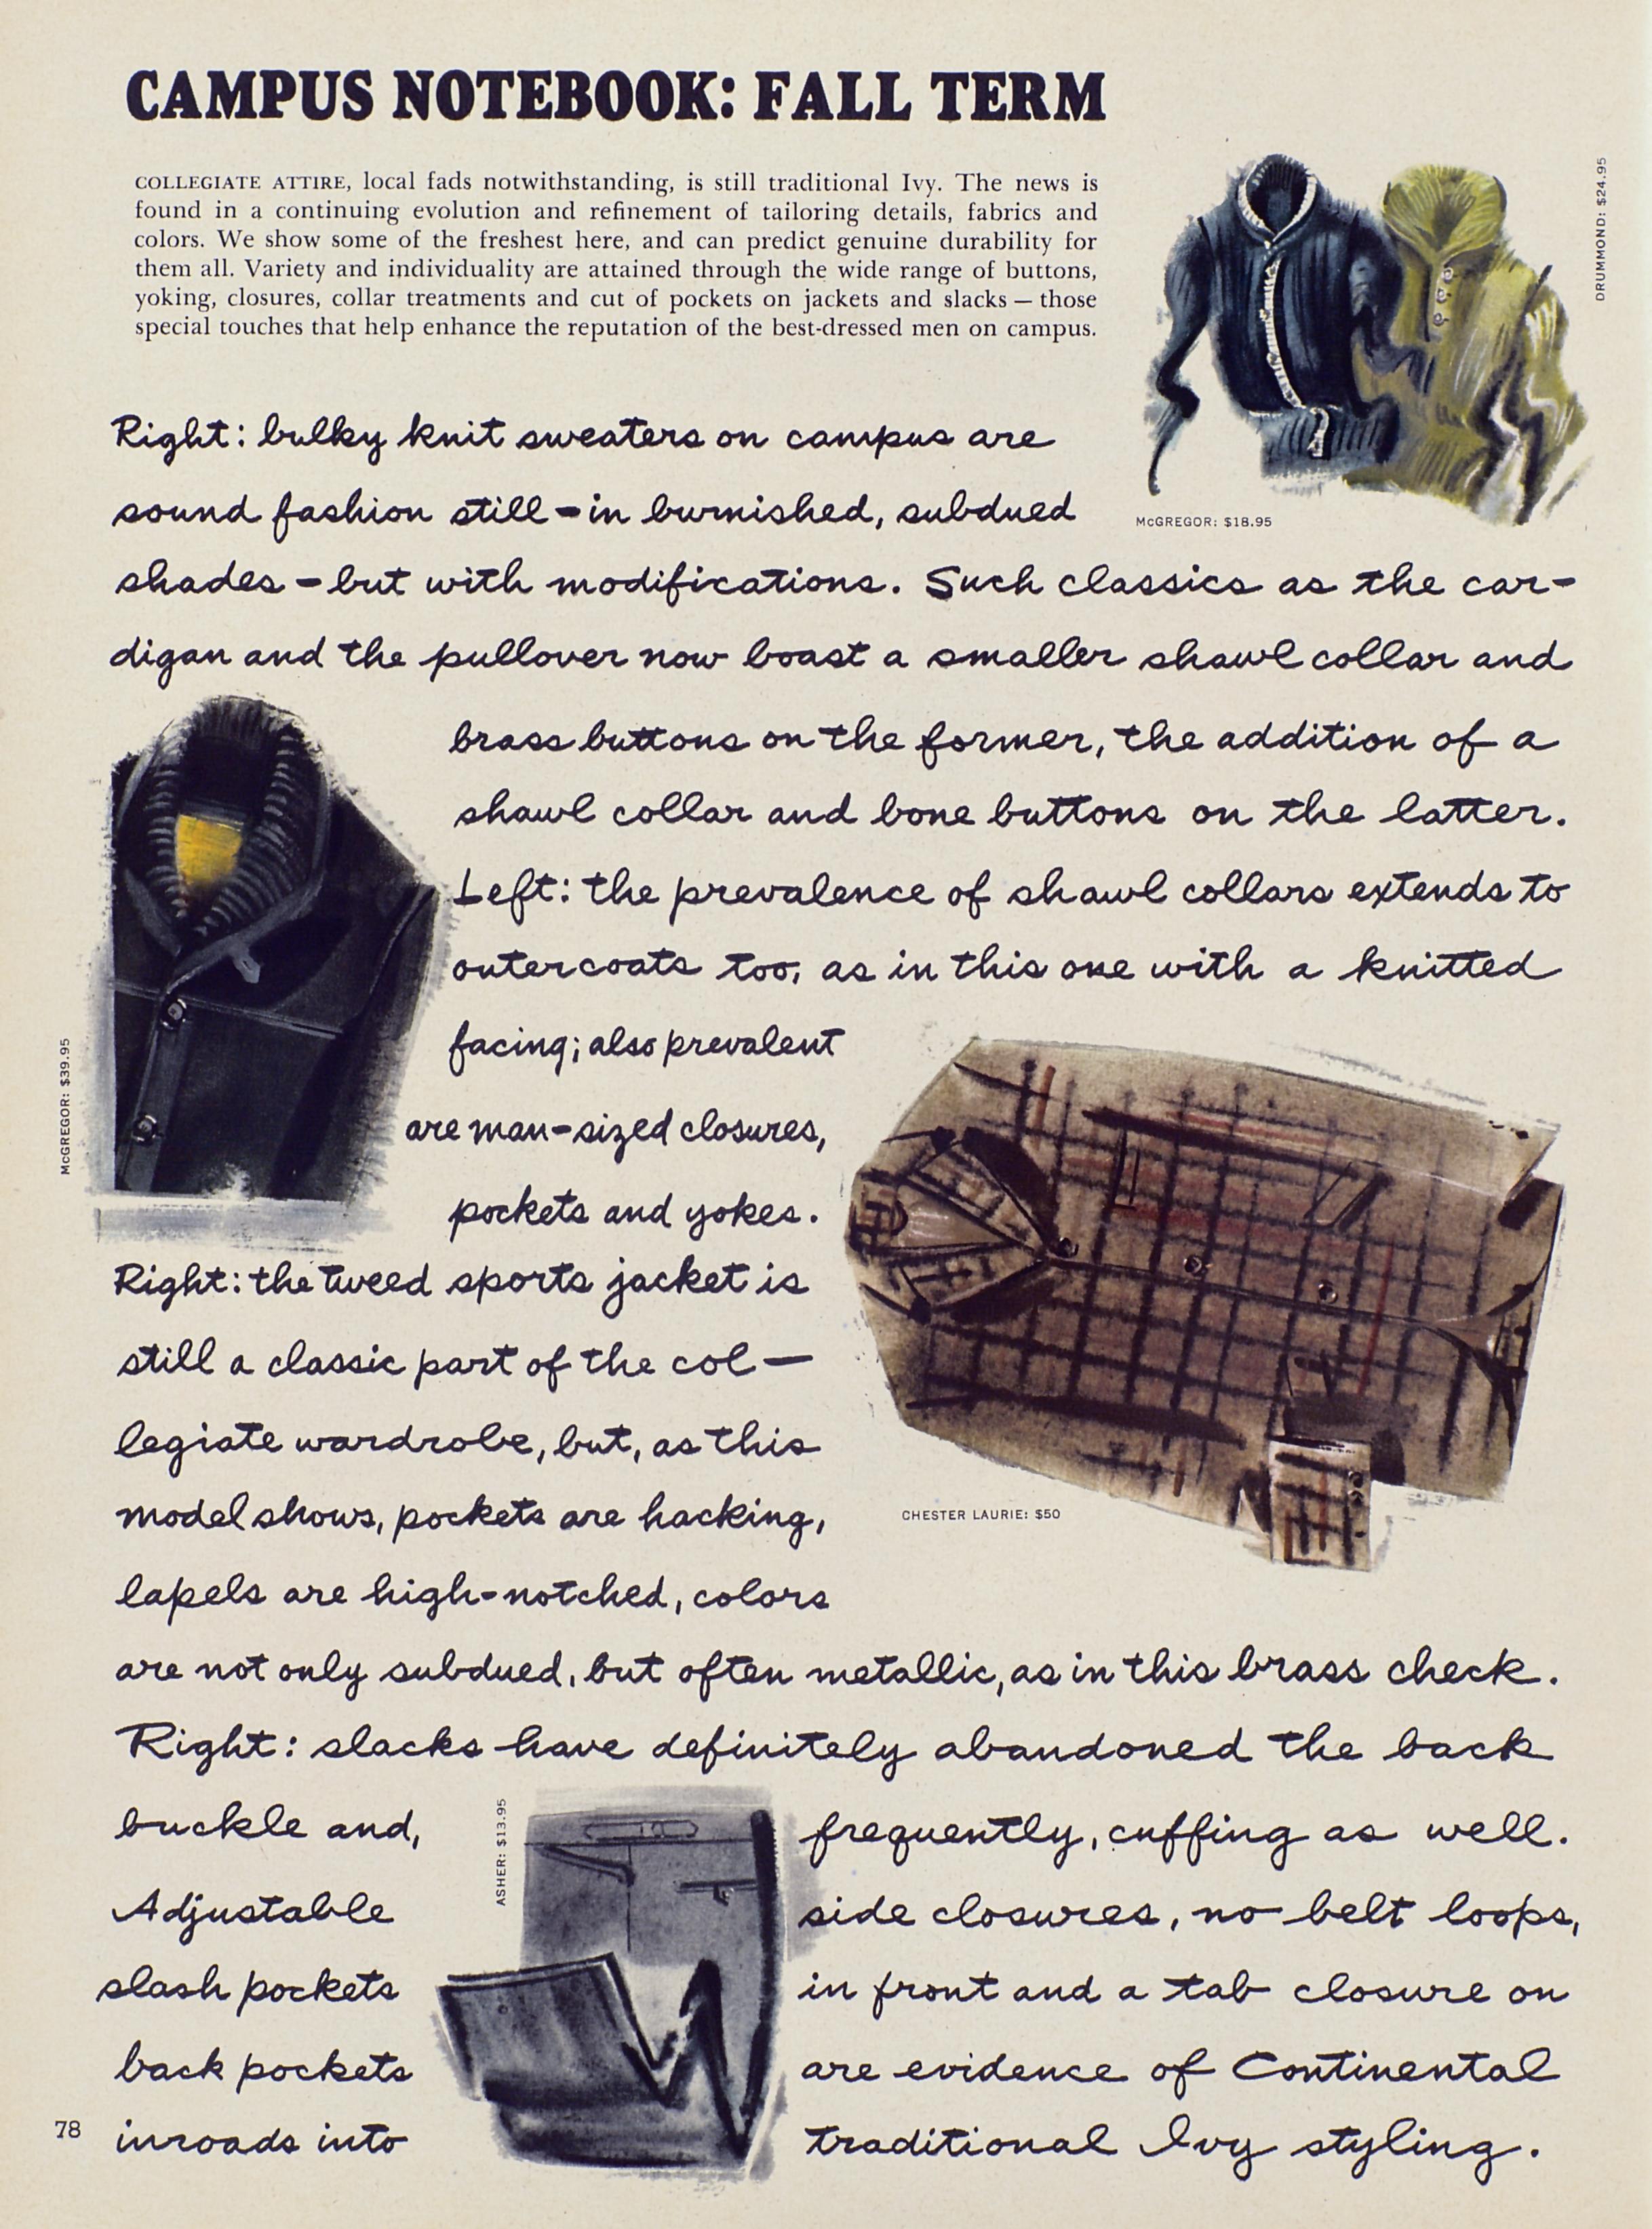 CAMPUS NOTEBOOK: FALL TERM
COLLEGIATE ATTIRE, local fads notwithstanding, is still traditional Ivy. The news is
found in a continuing evolution and refinement of tailoring details, fabrics and
colors. We show some of the freshest here, and can predict genuine durability for
them all. Variety and individuality are attained through the wide range of buttons,
yoking, closures, collar treatments and cut of pockets on jackets and slacks — those
special touches that help enhance the reputation of the best-dressed men on campus.
DRUMMOND: $24.95
McGREGOR: $18.95
Right: bulky knit sweaters on campus are
sound fashion still – in burnished, subdued
shades – but with modifications. Such classics as the car-
digan and the pullover now boast a smaller shawl collar and
brass buttons on the former, the addition of a
shawl collar and bone buttons on the latter.
Left: the prevalence of shawl collars extends to
outercoats too, as in this one with a knitted
facing; also prevalent
are man-sized closures,
pockets and yokes.
McGREGOR: $39.95
Right: the tweed sports jacket is
still a classic part of the col-
legiate wardrobe, but, as this
model shows, pockets are hacking,
lapels are high-notched, colors
are not only subdued, but often metallic, as in this brass check.
CHESTER LAURIE: $50
Right: slacks have definitely abandoned the back
buckle and, frequently, cuffing as well.
Adjustable side closures, no belt loops,
slash pockets in front and a tab closure on
back pockets are evidence of Continental
inroads into traditional Ivy styling.
ASHER: $13.95
78